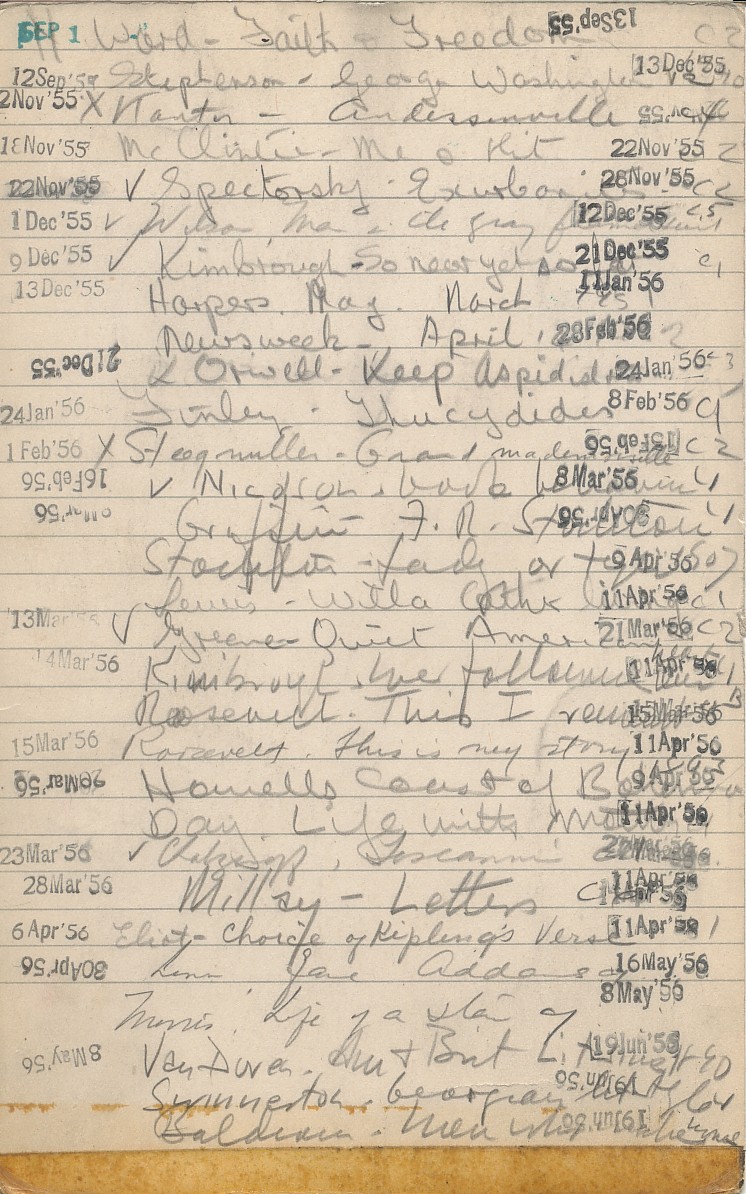 SEP 1 Ward - Faith & Freedom 13 Sep '55 C2
12 Sep '55 Stephenson - George Washington 13 Dec '55
2 Nov '55 X Kantor - Andersonville
18 Nov '55 McClintic - Me & Kit 22 Nov '55 C2
22 Nov '55 ✓ Spectorsky - Exurbanites 28 Nov '55 C2
1 Dec '55 ✓ Wilson, Man in the gray flannel suit 12 Dec '55
9 Dec '55 ✓ Kimbrough - So near yet so far 21 Dec '55 C1
13 Dec '55 Harpers. May. March 11 Jan '56
Newsweek - April, 28 Feb '56
21 Dec '55 Orwell - Keep Aspidistra 24 Jan '56 C3
24 Jan '56 Finley - Thucydides 8 Feb '56 C1
1 Feb '56 X Steegmuller - Grand mademoiselle 15 Feb '56 C2
16 Feb '56 ✓ Nicolson. Good behavior 8 Mar '56
Mar '56 Griffin F. R. Stockton 30 Apr '56
Stockton - Lady or tiger 9 Apr '56
Lewis - Willa Cather living 11 Apr '56 C1
13 Mar '56 ✓ Greene - Quiet American 21 Mar '56 C2
14 Mar '56 Kimbrough. We followed our 11 Apr '56
Roosevelt. This I remember 15 Mar '56
15 Mar '56 Roosevelt. This is my story 11 Apr '56
20 Mar '56 Howells Coast of Bohemia 9 Apr '56
Day Life with Mother 11 Apr '56
23 Mar '56 ✓ Chotzinoff, Toscanini
28 Mar '56 Millay - Letters 11 Apr '56
6 Apr '56 Eliot - Choice of Kipling's Verse 11 Apr '56
30 Apr '56 Linn Jane Addams 16 May '56
8 May '56
Life of a star
8 May '56 Van Doren. Am & Brit Lit 19 Jun '56
Swinnerton. Georgian 19 Jun '56
Baldwin - Men 19 Jun '56